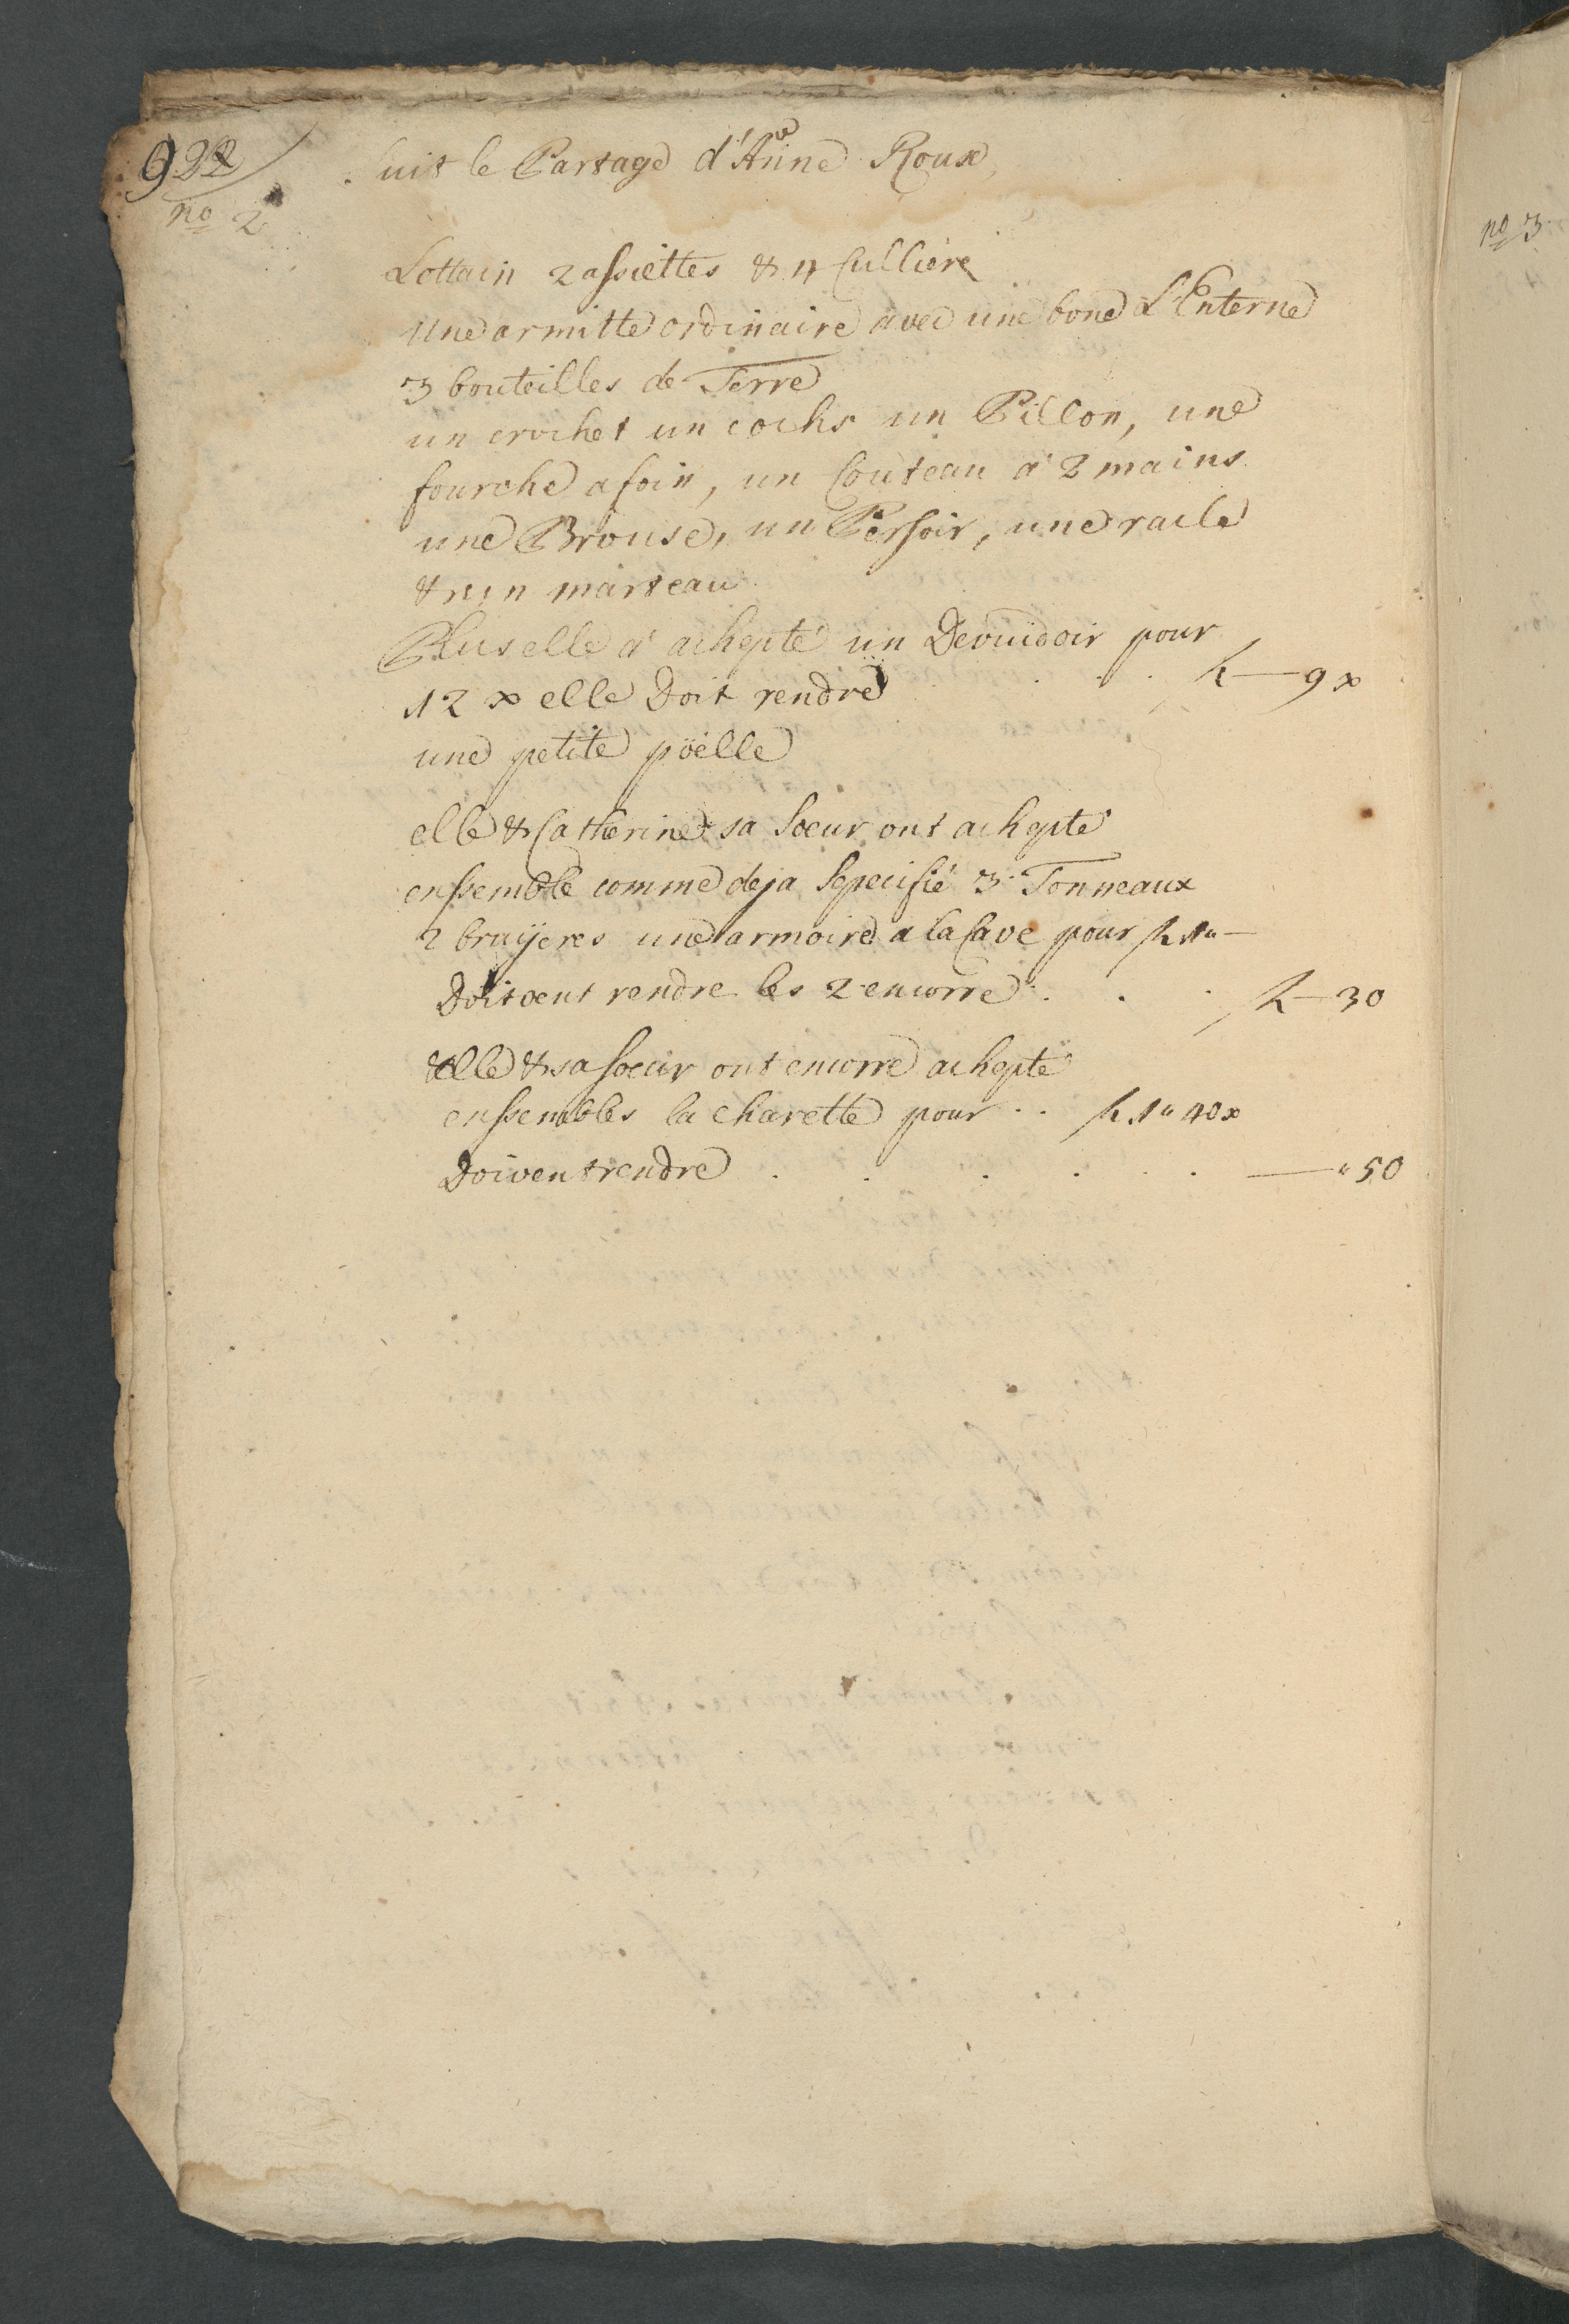 922
no 2
Suit le Partage d'Anne Roux
Lottain 2 assiettes & 4 Culliere
Une armitte ordinaire avec une bone L'Enterne
3 bouteilles de Terre
un crochet un cochs un Pillon, une
fourche a foin, un Couteau a 2 mains
une Brouse, un Persoir, une racle
& un marteau
Plus elle a achepté un Devuidoir pour
12 x elle Doit rendre . . . . f — 9 x
une petite pöelle
elle & Catherine sa Soeur ont achepté
enssemble comme deja Specifié 3 Tonneaux
2 bruÿeres une armoire a la Cave pour f 1 " —
Doivent rendre les 2 encorre . . . f — 30
elle & sa Soeur ont encorre achepté
enssembles la charette pour . . f 1 " 40 x
Doivent rendre . . . . . — " 50
no 3